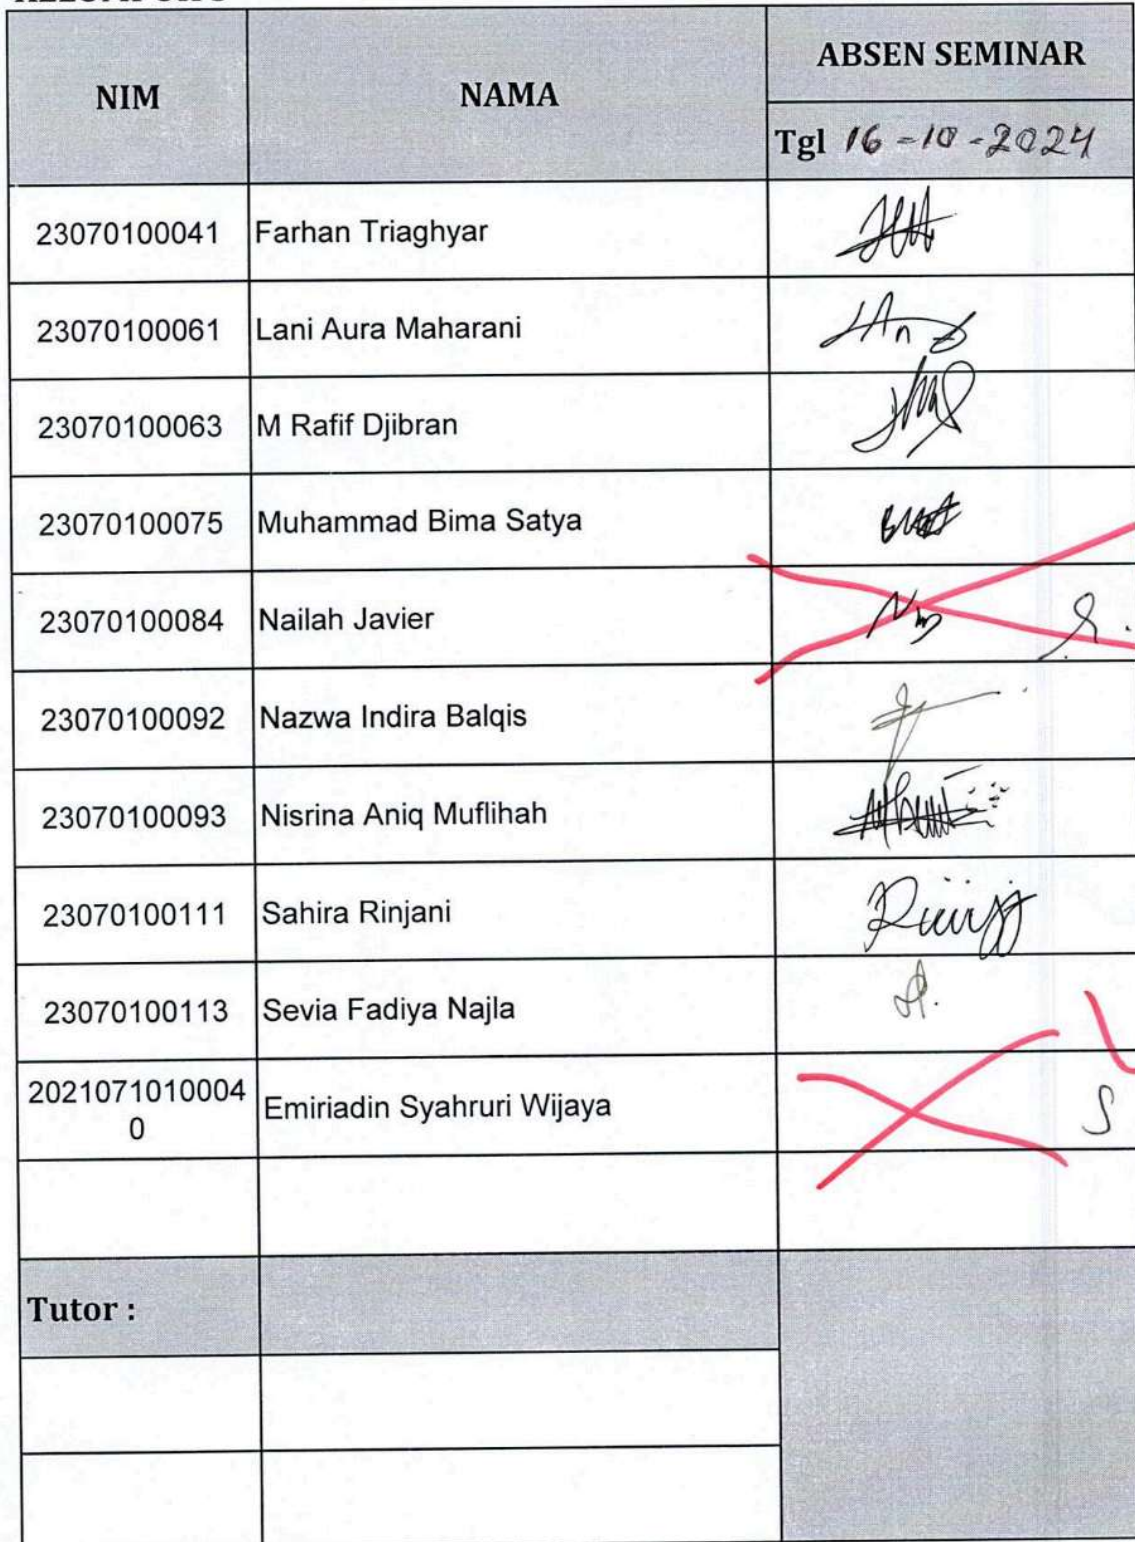 NIM
NAMA
ABSEN SEMINAR
Tgl 16-10-2024
23070100041 Farhan Triaghyar
23070100061 Lani Aura Maharani
23070100063 M Rafif Djibran
23070100075 Muhammad Bima Satya
23070100084 Nailah Javier
23070100092 Nazwa Indira Balqis
23070100093 Nisrina Aniq Muflihah
23070100111 Sahira Rinjani
23070100113 Sevia Fadiya Najla
2021071010004
0
Emiriadin Syahruri Wijaya
S
Tutor :